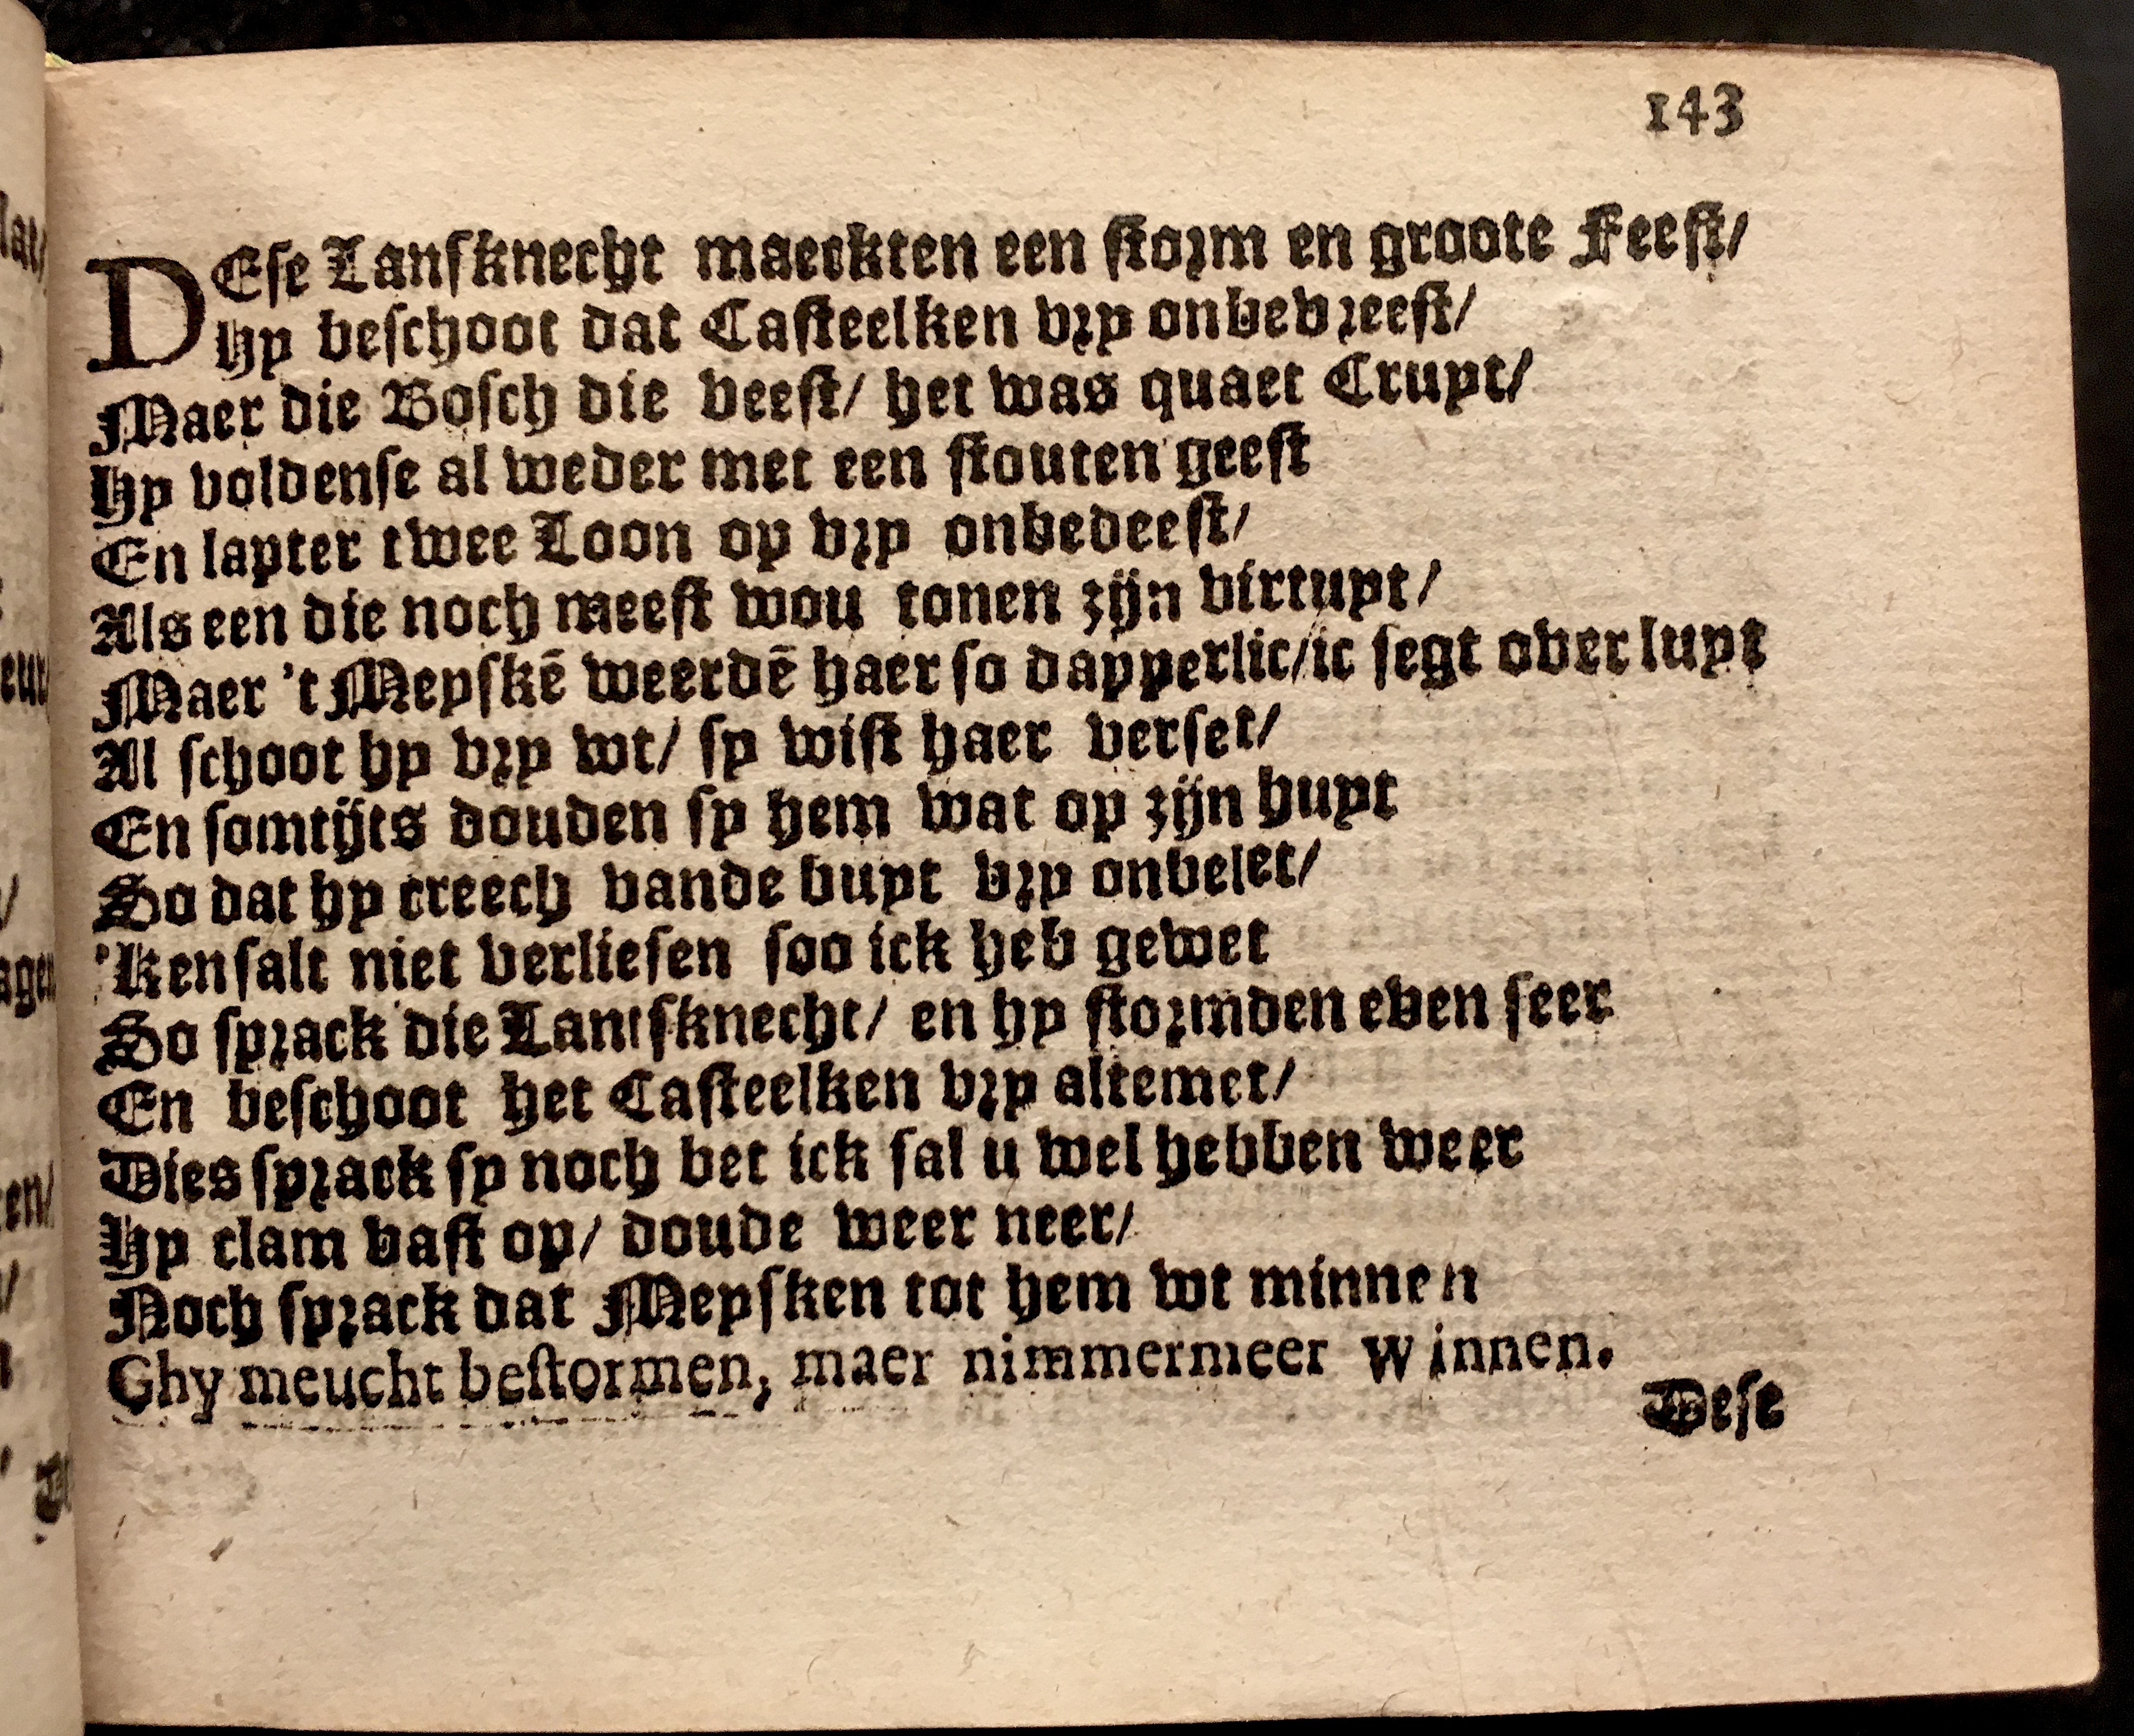 143
DEse Lansknecht maeckten een storm en groote Feest/
Hy beschoot dat Casteelken vry onbevreest/
Maer die Bosch die veest/ het was quaet Cruyt/
Hy voldense al weder met een stouten geest
En lapter twee Loon op vry onbedeest/
Als een die noch meest wou tonen zijn virtuyt/
Maer 't Meyskē weerdē haer so dapperlic/ic segt over luyt
Al schoot hy vry wt/ sy wist haer verset/
En somtijts douden sy hem wat op zijn huyt
So dat hy creech vande buyt vry onbelet/
'Kensalt niet verliesen soo ick heb gewet
So sprack die Lantsknecht/ en hy stormden even seer
En beschoot het Casteelken vry altemet/
Dies sprack sy noch bet ick sal u wel hebben weer
Hy clam vast op/ doude weer neer/
Noch sprack dat Meysken tot hem wt minnen
Ghy meucht bestormen, maer nimmermeer winnen.
Dese